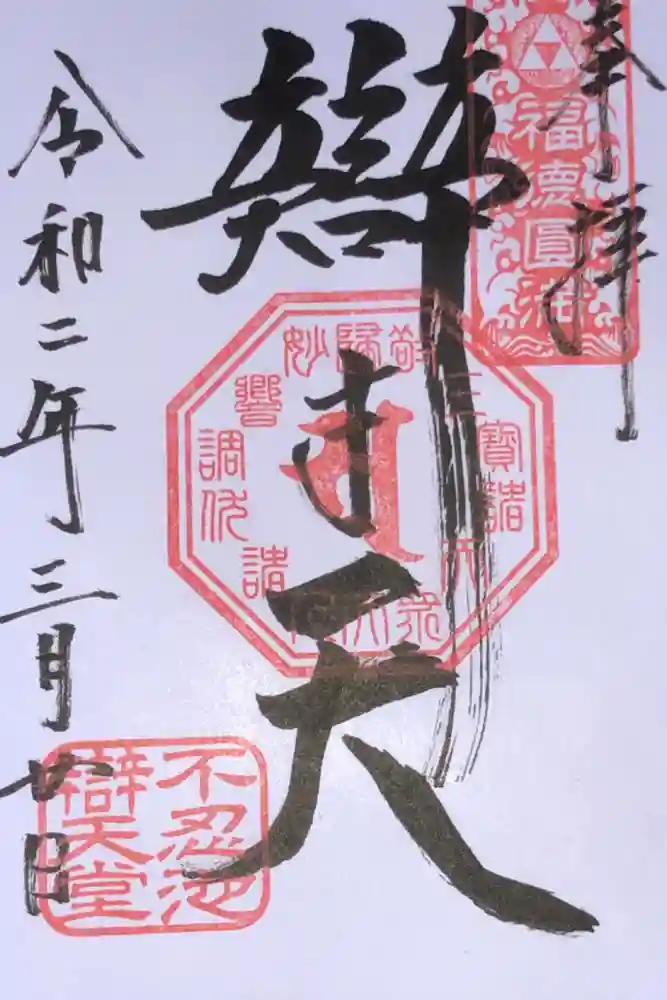 奉拝
福德圓満
辯才天
令和二年三月廿日
不忍池
辯天堂